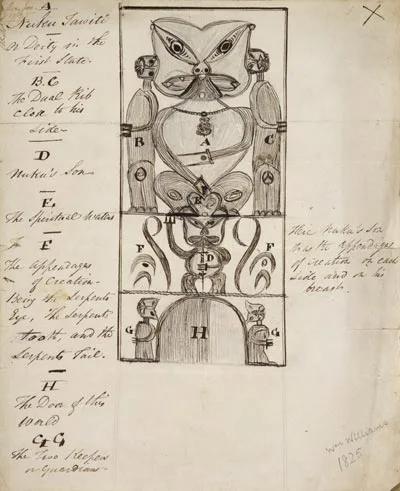 A
Nuku Tawiti
A Deity in the
First State.
B.C
The Dual Rib
Close to his
side
D
Nuku's Son
E
The Spiritual Waters
F
The Appendages
of Creation.
Being the Serpents
Eye, The Serpents
tooth, and the
Serpents Tail.
H
The Door of this
World
G G
The Two Keepers
or Guardians
B
A
C
E
F
D
F
G
H
G
Here Nuku's Son
has the appendages
of Creation on each
side and on his
breast.
Wm Williams
1825